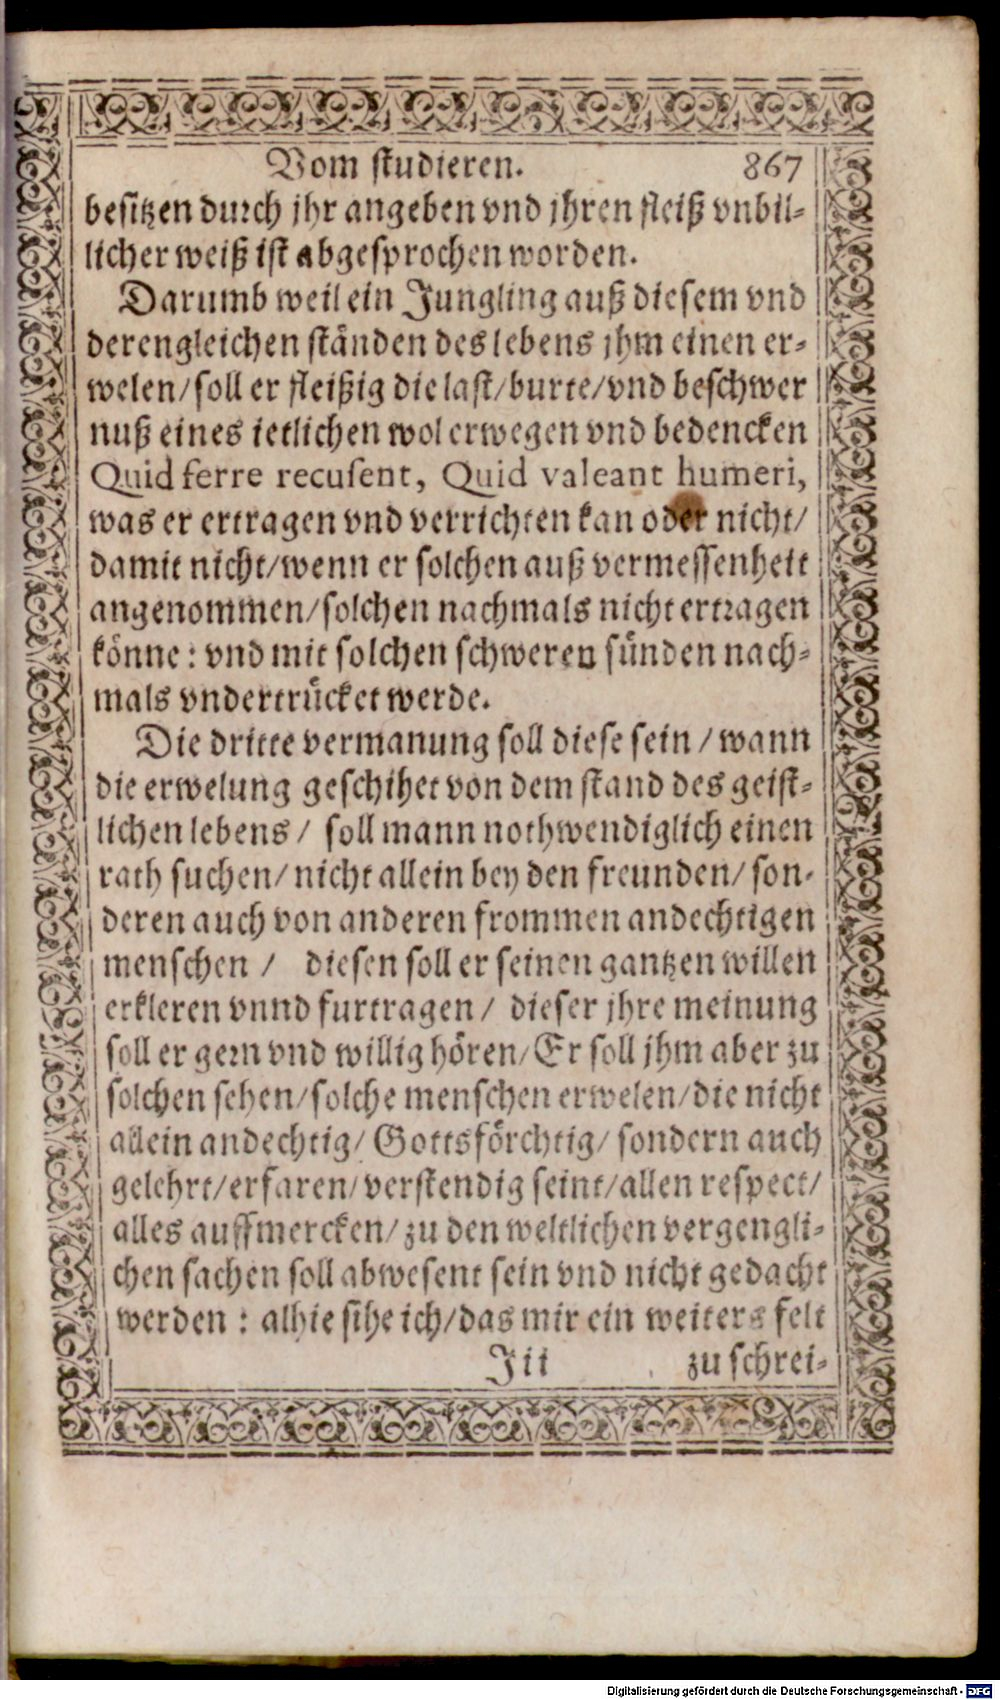 Vom studieren. 867
besitzen durch jhr angeben vnd jhren fleiß vnbil-
licher weiß ist abgesprochen worden.
Darumb weil ein Jungling auß diesem vnd
derengleichen ständen des lebens jhm einen er-
welen/soll er fleißig die last/burte/vnd beschwer
nuß eines ietlichen wol erwegen vnd bedencken
Quid ferre recusent, Quid valeant humeri,
was er ertragen vnd verrichten kan oder nicht/
damit nicht/wenn er solchen auß vermessenheit
angenommen/solchen nachmals nicht ertragen
könne: vnd mit solchen schweren sünden nach-
mals vndertrücket werde.
Die dritte vermanung soll diese sein/wann
die erwelung geschihet von dem stand des geist-
lichen lebens/ soll mann nothwendiglich einen
rath suchen/nicht allein bey den freunden/son-
deren auch von anderen frommen andechtigen
menschen/ diesen soll er seinen gantzen willen
erkleren vnnd furtragen/ dieser jhre meinung
soll er gern vnd willig hören/Er soll jhm aber zu
solchen sehen/solche menschen erwelen/die nicht
allein andechtig/Gottsförchtig/sondern auch
gelehrt/erfaren/verstendig seint/allen respect/
alles auffmercken/zu den weltlichen vergengli-
chen sachen soll abwesent sein vnd nicht gedacht
werden: alhie sihe ich/das mir ein weiters felt
Iii zu schrei-
Digitalisierung gefördert durch die Deutsche Forschungsgemeinschaft - DFG